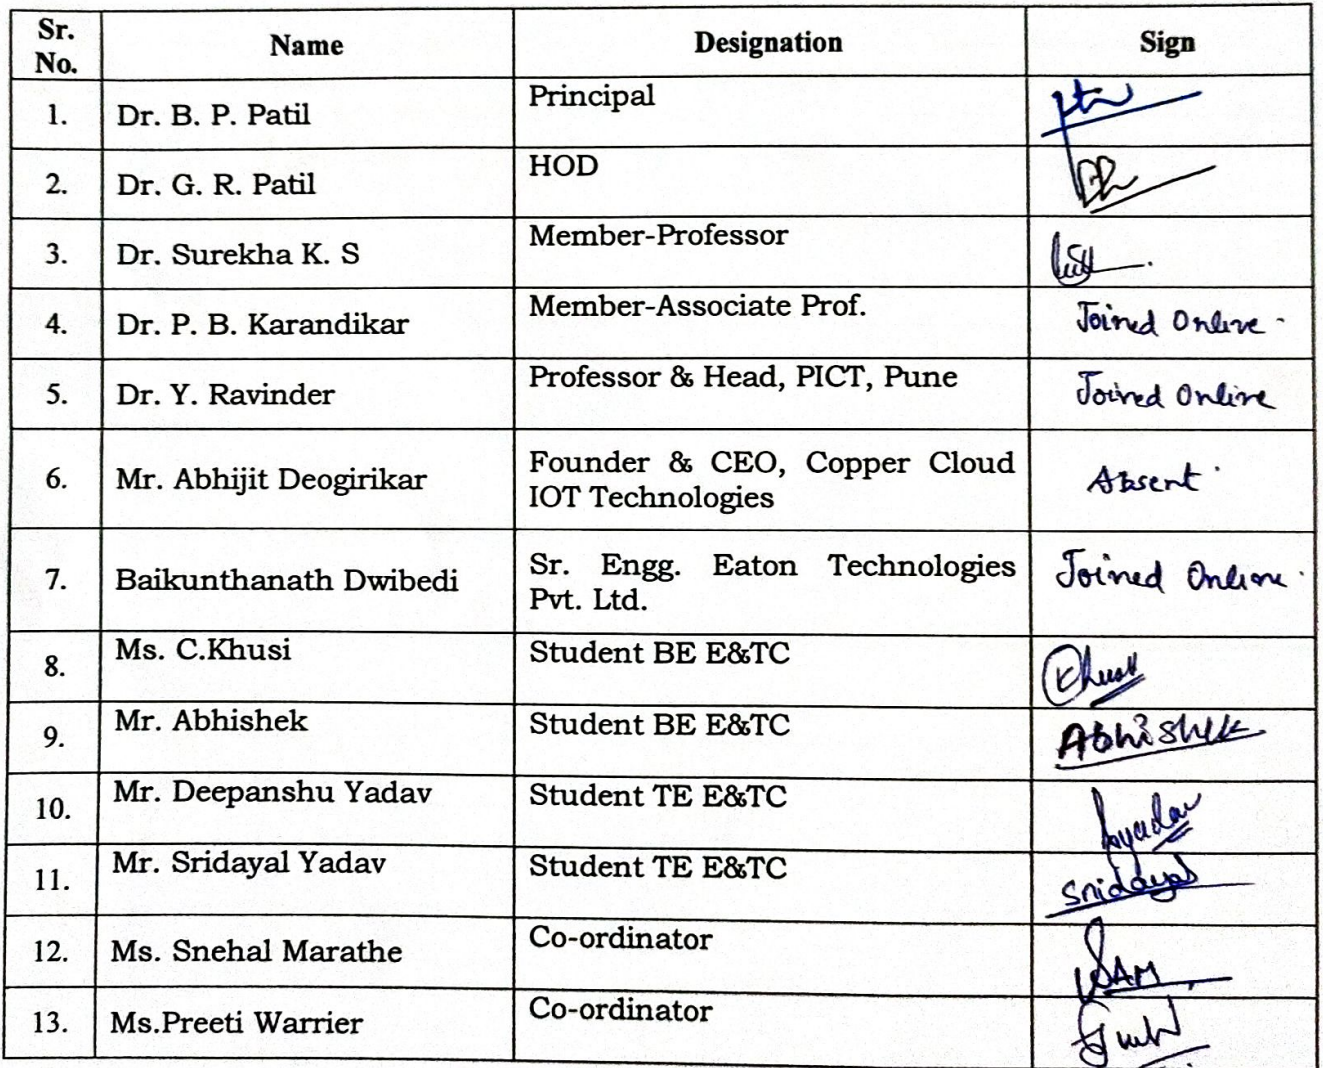 Sr. No. Name Designation Sign
1. Dr. B. P. Patil Principal
2. Dr. G. R. Patil HOD
3. Dr. Surekha K. S Member-Professor
4. Dr. P. B. Karandikar Member-Associate Prof. Joined Online
5. Dr. Y. Ravinder Professor & Head, PICT, Pune Joined Online
6. Mr. Abhijit Deogirikar Founder & CEO, Copper Cloud
IOT Technologies Absent
7. Baikunthanath Dwibedi Sr. Engg. Eaton Technologies
Pvt. Ltd. Joined Online
8. Ms. C.Khusi Student BE E&TC
9. Mr. Abhishek Student BE E&TC Abhishek
10. Mr. Deepanshu Yadav Student TE E&TC
11. Mr. Sridayal Yadav Student TE E&TC Sridayal
12. Ms. Snehal Marathe Co-ordinator
13. Ms.Preeti Warrier Co-ordinator